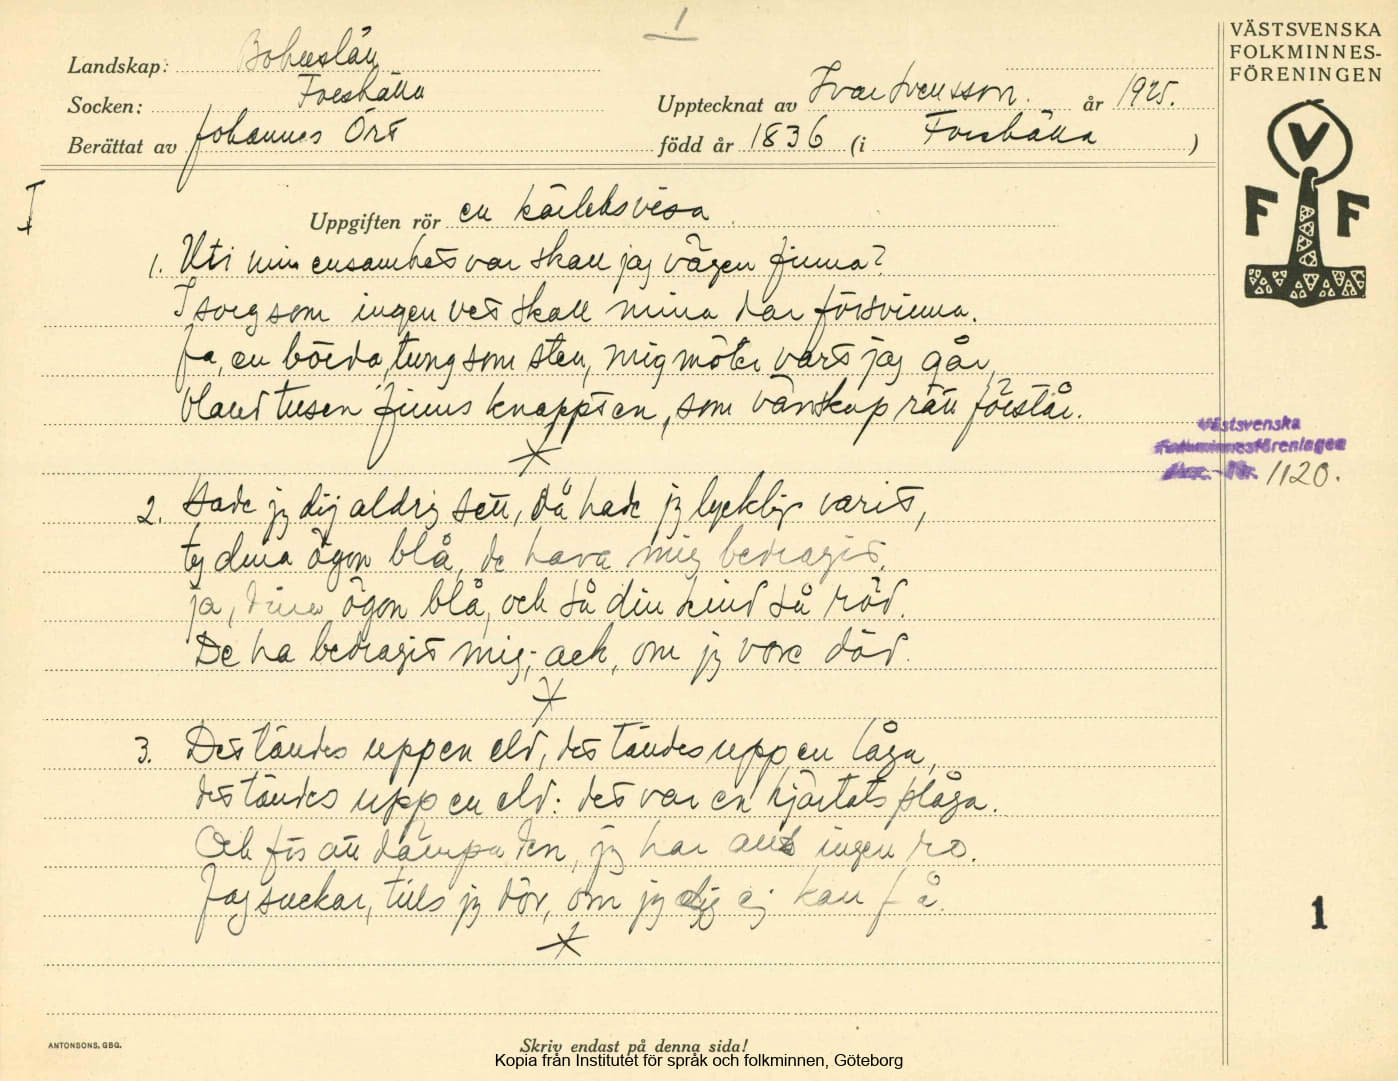 1
VÄSTSVENSKA
FOLKMINNES-
FÖRENINGEN
V
F F
Landskap: Bohuslän
Socken: Foresbälla
Upptecknat av Ivar Ivensson. år 1925.
Berättat av Johannes Ört
född år 1836 (i Foresbälla )
I
Uppgiften rör en kärleksvisa
1. Uti min ensamhet var skall jag vägen finna?
I sorg som ingen vet skall mina dar försvinna.
Ja, en börda, tung som sten, mig möter vart jag går,
bland tusen finns knappt en, som vänskap rätt förstår.
Västsvenska
Folkminnesföreningen
Acc. Nr. 1120.
2. Hade jg dig aldrig sett, då hade jg lycklig varit,
ty dina ögon blå, de hava mig bedragit.
ja, dina ögon blå, och så din kind så röd.
De ha bedragit mig; ack, om jg vore död.
3. Det tändes upp en eld, det tändes upp en låga,
det tändes upp en eld: det var en hjärtats plåga.
Och för att dämpa den, jg har alls ingen ro.
Jag suckar, tills jg dör, om jg dig ej kan få.
1
ANTONSONS, GBG.
Skriv endast på denna sida!
Kopia från Institutet för språk och folkminnen, Göteborg